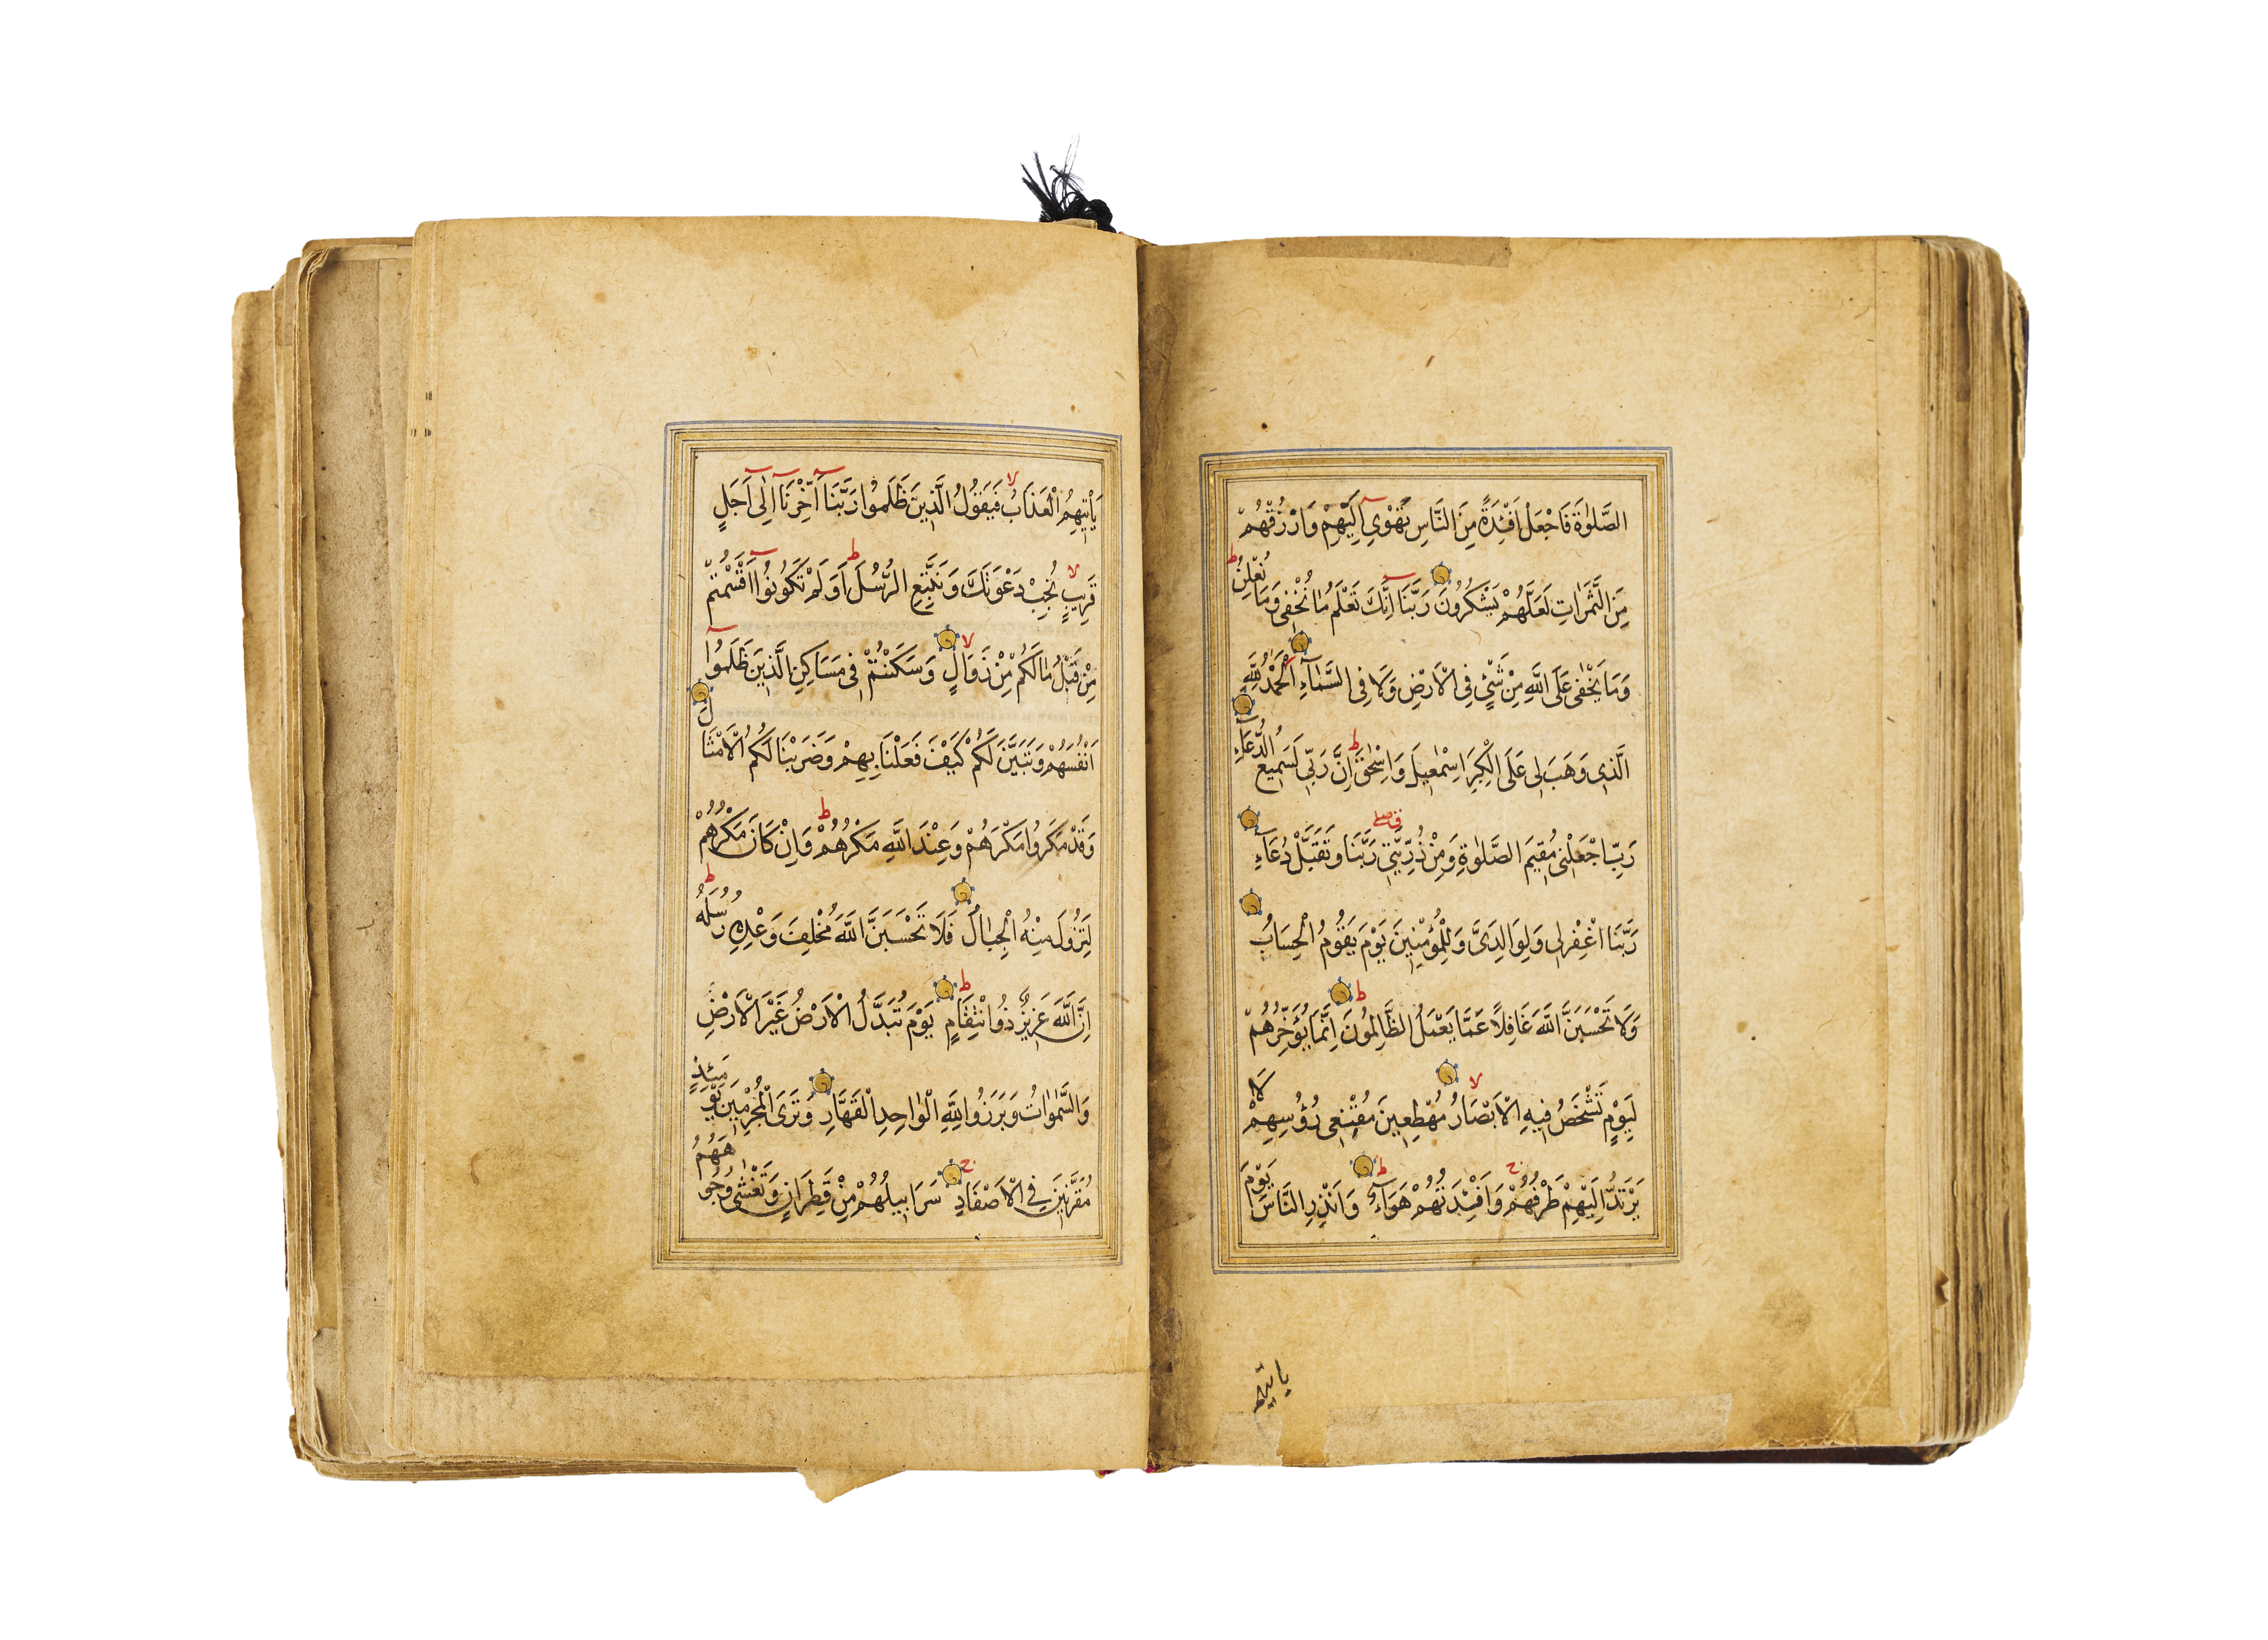 الصَّلٰوةَ فَاجْعَلْ اَفْئِدَةً مِنَ النَّاسِ تَهْوِي اِلَيْهِمْ وَارْزُقْهُمْ
مِنَ الثَّمَرَاتِ لَعَلَّهُمْ يَشْكُرُونَ رَبَّنَا اِنَّكَ تَعْلَمُ مَا نُخْفِى وَمَا نُعْلِنُ
وَمَا يَخْفٰى عَلَى اللّٰهِ مِنْ شَيْءٍ فِى الْاَرْضِ وَلَا فِى السَّمَاءِ اَلْحَمْدُ لِلّٰهِ
الَّذِى وَهَبَ لِى عَلَى الْكِبَرِ اِسْمٰعِيلَ وَاِسْحٰقَ اِنَّ رَبِّى لَسَمِيعُ الدُّعَاءِ
رَبِّ اجْعَلْنِى مُقِيمَ الصَّلٰوةِ وَمِنْ ذُرِّيَّتِى رَبَّنَا وَتَقَبَّلْ دُعَاءِ
رَبَّنَا اغْفِرْ لِى وَلِوَالِدَىَّ وَلِلْمُؤْمِنِينَ يَوْمَ يَقُومُ الْحِسَابُ
وَلَا تَحْسَبَنَّ اللّٰهَ غَافِلًا عَمَّا يَعْمَلُ الظَّالِمُونَ اِنَّمَا يُؤَخِّرُهُمْ
لِيَوْمٍ تَشْخَصُ فِيهِ الْاَبْصَارُ مُهْطِعِينَ مُقْنِعِى رُؤُسِهِمْ لَا
يَرْتَدُّ اِلَيْهِمْ طَرْفُهُمْ وَاَفْئِدَتُهُمْ هَوَاءٌ وَاَنْذِرِ النَّاسَ يَوْمَ
ياتيهم
يَأْتِيهِمُ الْعَذَابُ فَيَقُولُ الَّذِينَ ظَلَمُوا رَبَّنَا اَخِّرْنَا اِلٰى اَجَلٍ
قَرِيبٍ نُجِبْ دَعْوَتَكَ وَنَتَّبِعِ الرُّسُلَ اَوَلَمْ تَكُونُوا اَقْسَمْتُمْ
مِنْ قَبْلُ مَا لَكُمْ مِنْ زَوَالٍ وَسَكَنْتُمْ فِى مَسَاكِنِ الَّذِينَ ظَلَمُوا
اَنْفُسَهُمْ وَتَبَيَّنَ لَكُمْ كَيْفَ فَعَلْنَا بِهِمْ وَضَرَبْنَا لَكُمُ الْاَمْثَالَ
وَقَدْ مَكَرُوا مَكْرَهُمْ وَعِنْدَ اللّٰهِ مَكْرُهُمْ وَاِنْ كَانَ مَكْرُهُمْ
لِتَزُولَ مِنْهُ الْجِبَالُ فَلَا تَحْسَبَنَّ اللّٰهَ مُخْلِفَ وَعْدِهِ رُسُلَهُ
اِنَّ اللّٰهَ عَزِيزٌ ذُو انْتِقَامٍ يَوْمَ تُبَدَّلُ الْاَرْضُ غَيْرَ الْاَرْضِ
وَالسَّمٰوَاتُ وَبَرَزُوا لِلّٰهِ الْوَاحِدِ الْقَهَّارِ وَتَرَى الْمُجْرِمِينَ يَوْمَئِذٍ
مُقَرَّنِينَ فِى الْاَصْفَادِ سَرَابِيلُهُمْ مِنْ قَطِرَانٍ وَتَغْشٰى وُجُوهَهُمُ